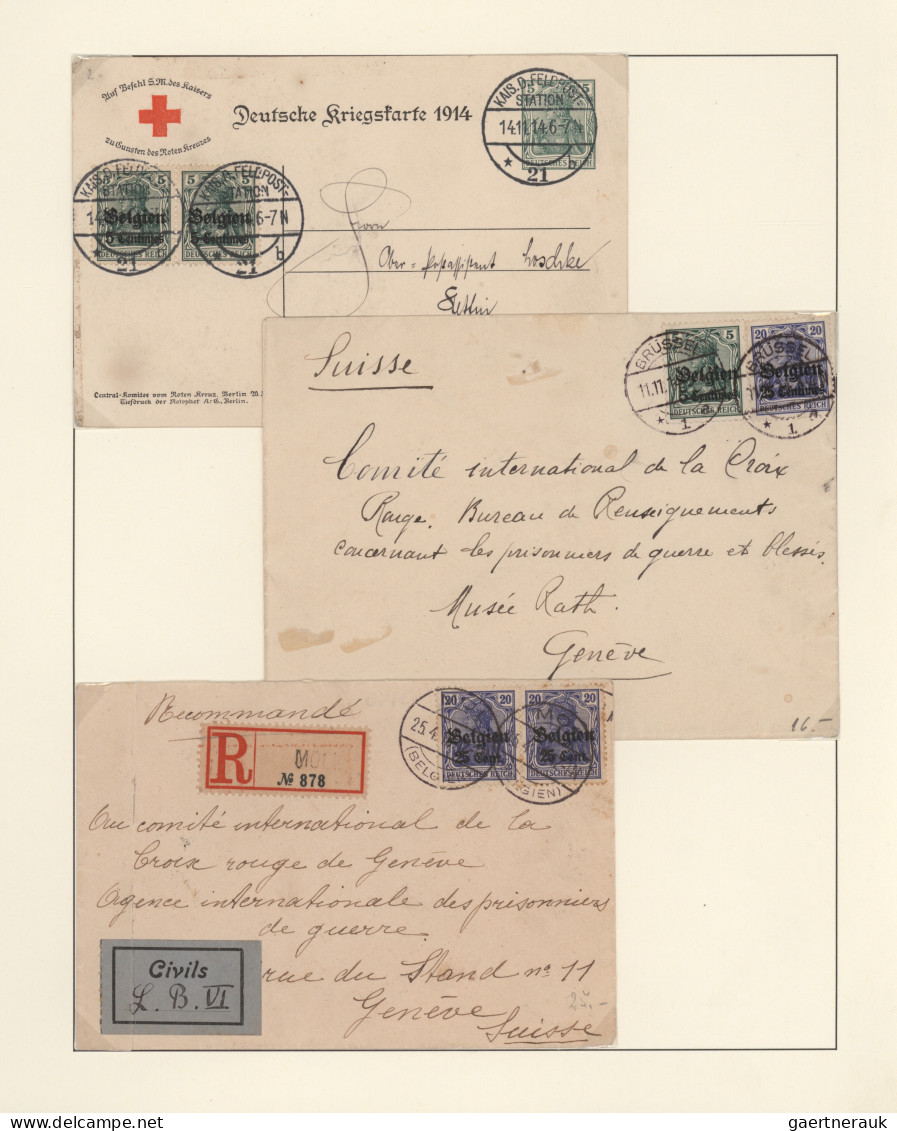 Auf Befehl S.M. des Kaisers
zu Gunsten des Roten Kreuzes
Deutsche Kriegskarte 1914
KAIS. D. FELDPOST=
STATION
14 11 14. 6-7 N
* 21 b
5
DEUTSCHES REICH
KAIS. D. FELDPOST=
STATION
5
5
Belgien
5 Centimes
DEUTSCHES REICH
* 21
5
Belgien
5 Centimes
DEUTSCHES REICH
6-7 N
21 b
Herrn
Ober-Postassistent Loschke
Stettin
Central-Komitee vom Roten Kreuz, Berlin W.
Tiefdruck der Rotophot A.-G., Berlin.
Suisse
BRÜSSEL
11.11.
* 1
5
Belgien
5 Centimes
DEUTSCHES REICH
20 20
Belgien
25 Centimes
DEUTSCHES REICH
BRÜSSEL
* 1
Comité international de la Croix
Rouge. Bureau de Renseignements
concernant les prisonniers de guerre et blessés.
Musée Rath.
Genève
16.-
Recommandé
R
MOL
№ 878
25.4.
(BELGIEN)
20 20
Belgien
25 Cent.
DEUTSCHES REICH
20 20
Belgien
25 Cent.
DEUTSCHES REICH
Au comité international de la
Croix rouge de Genève
Agence internationale des prisonniers
de guerre.
rue du Stand nº 11
Genève
Suisse
Civils
L. B. VI
gaertnerauk
www.delcampe.net